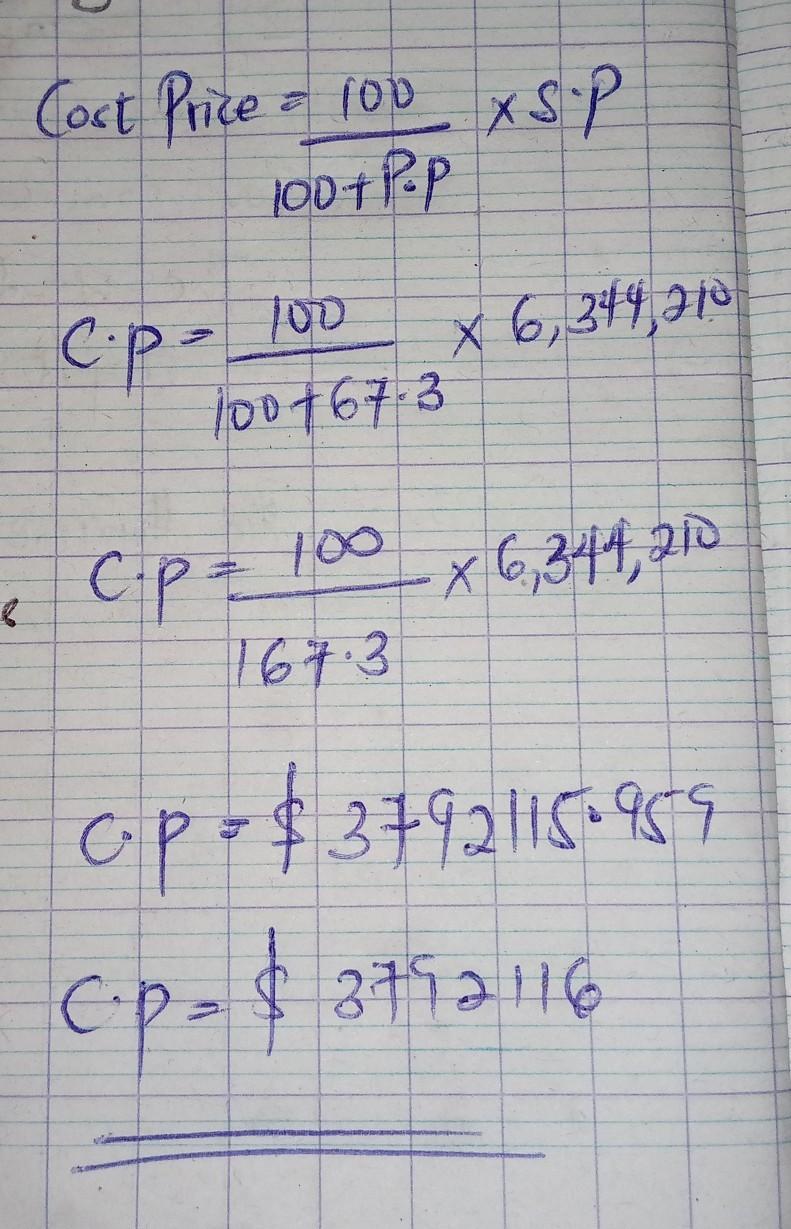 Cost Price = 100
———
100+P.P × S.P
C.P = 100
———
100+67.3 × 6,344,210
C.P = 100
———
167.3 × 6,344,210
C.P = $ 3792115.959
C.P = $ 3792116